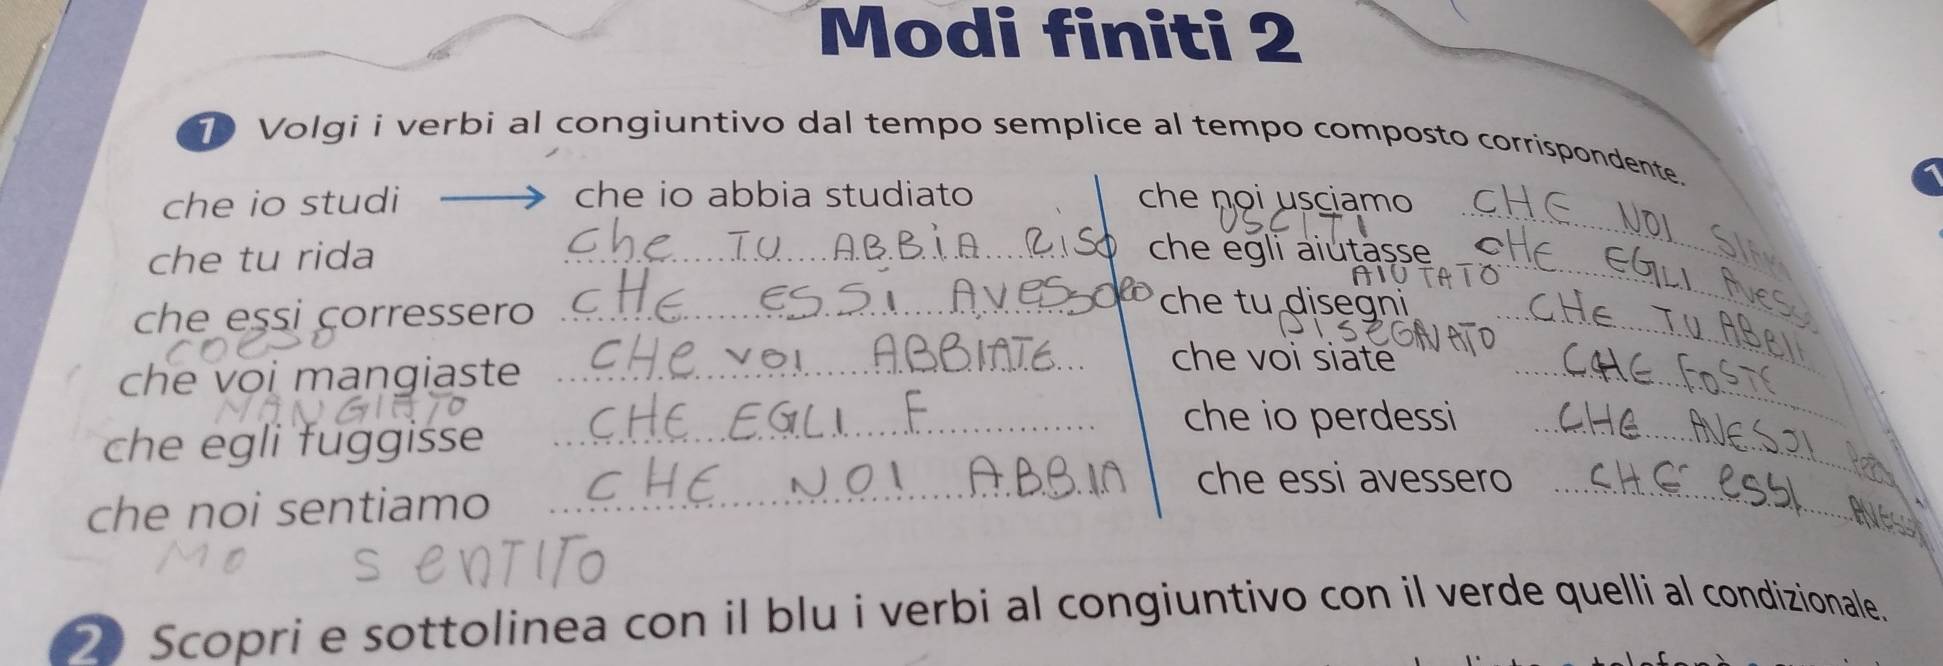 Modi finiti 2
1 Volgi i verbi al congiuntivo dal tempo semplice al tempo composto corrispondente.
che io studi che io abbia studiato
che tu rida che TU ABBiA RISO
che essi corressero CHE ESSI AVESSERO
CORSO
che voi mangiaste CHE VOI ABBIATE
MANGIATO
che egli fuggisse CHE EGLI F
che noi sentiamo CHE NOI ABBIA
MO SENTITO
che noi usciamo CHE NOI SIAM
USCITI
che egli aiutasse CHE EGLI AVESS
AIUTATO
che tu disegni CHE TU ABBI
DISEGNATO
che voi siate CHE FOSTE
che io perdessi CHE AVESSI
che essi avessero CHE eSSI
2 Scopri e sottolinea con il blu i verbi al congiuntivo con il verde quelli al condizionale.